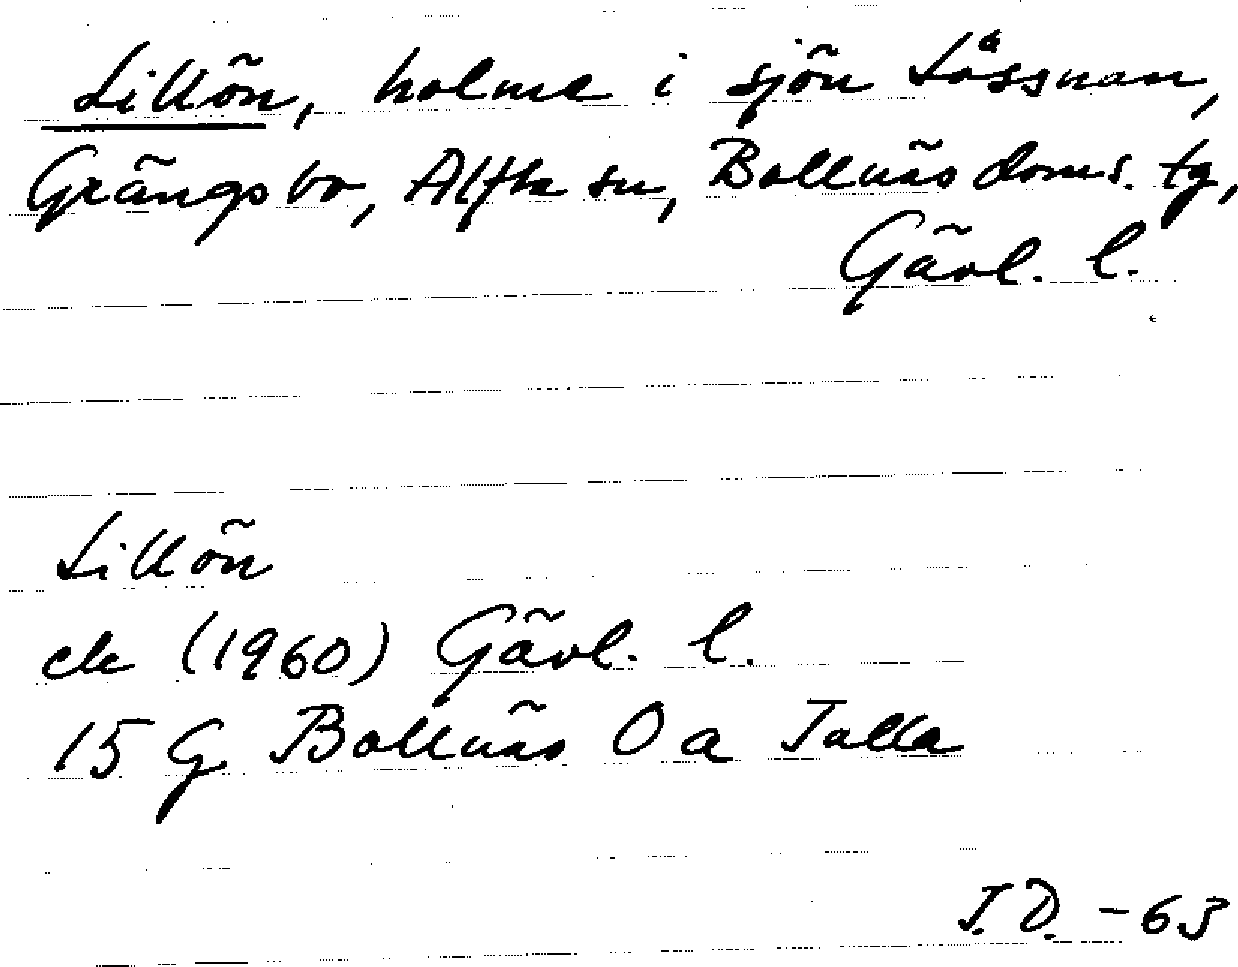 Lillön, holme i sjön Låssnan,
Grängsbo, Alfta sn, Bollnäs doms. tg,
Gävl. l.
Lillön
ek (1960) Gävl. l.
15 G Bollnäs 0 a Talla
I.D. -63